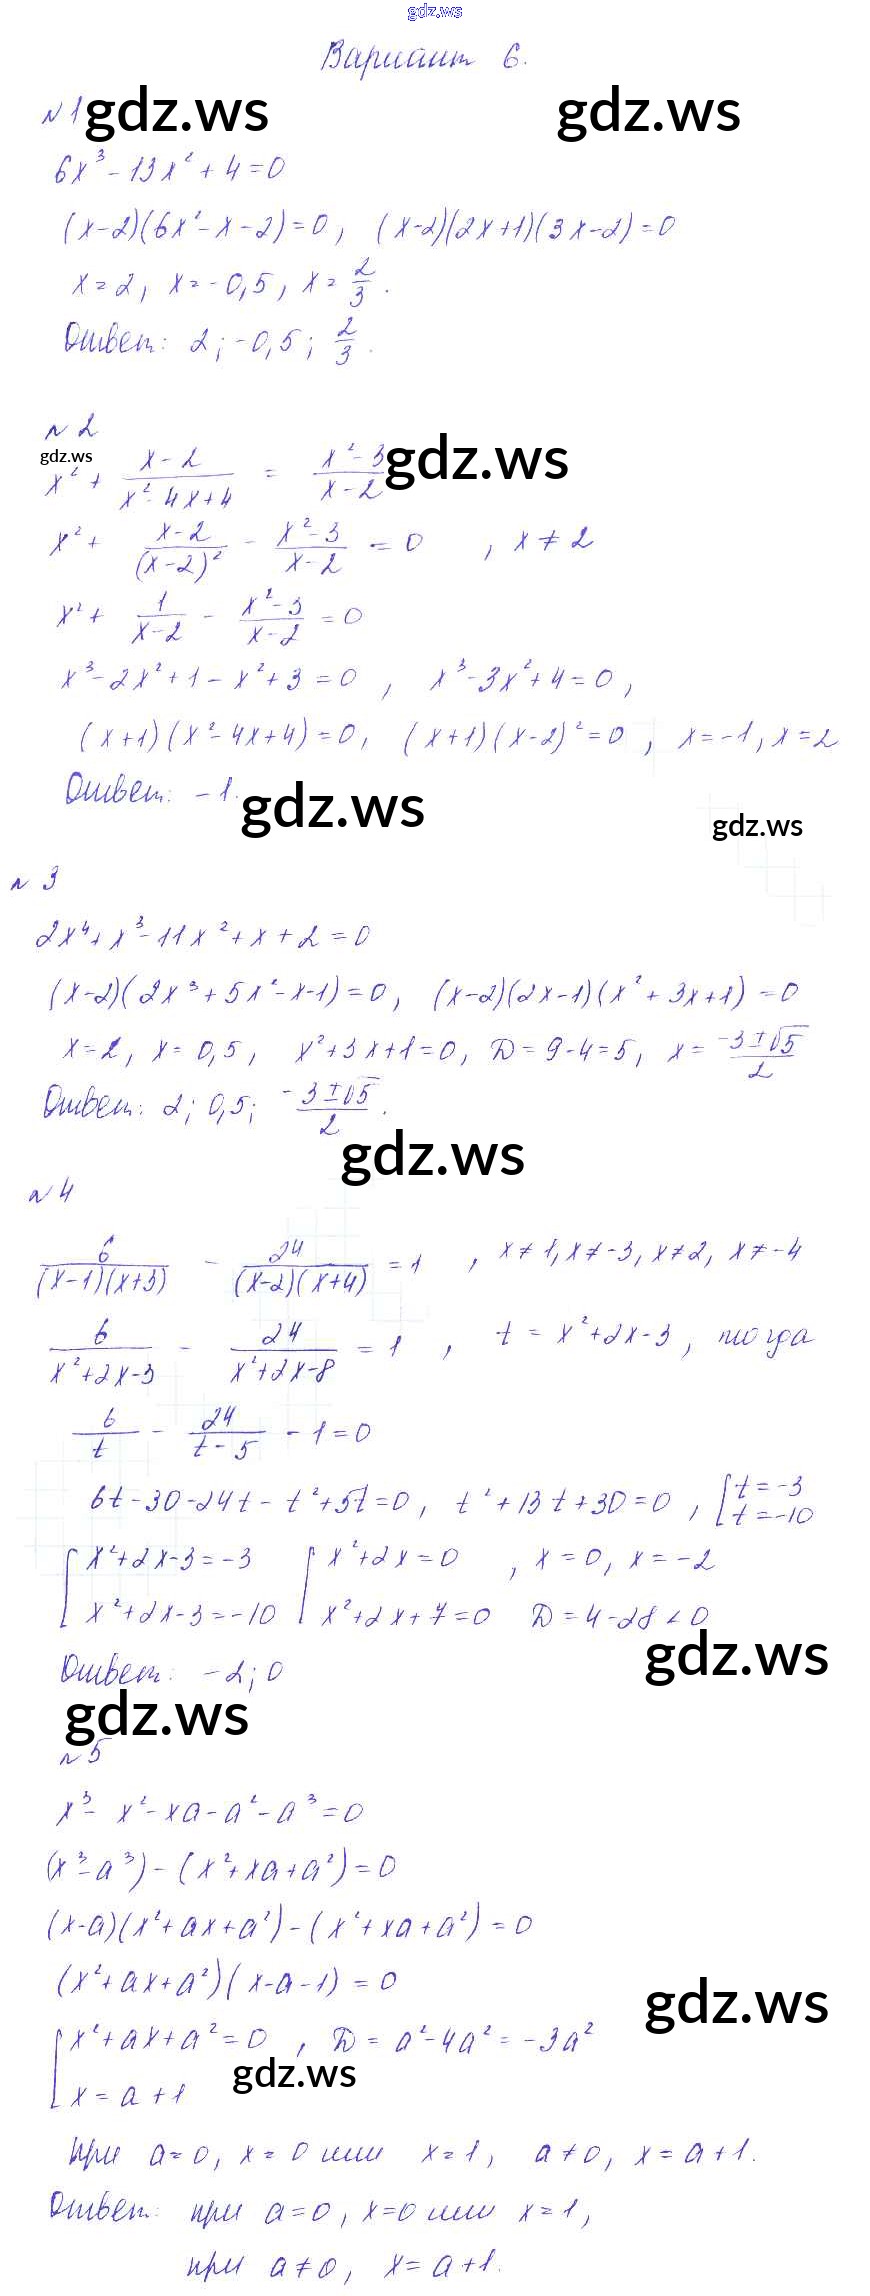 gdz.ws
Вариант 6.
№1 gdz.ws gdz.ws
6x³ - 13x² + 4 = 0
(x-2)(6x² - x - 2) = 0, (x-2)(2x+1)(3x-2) = 0
x = 2, x = -0,5, x = 2/3.
Ответ: 2; -0,5; 2/3.
№2
gdz.ws gdz.ws
x² + (x-2)/(x²-4x+4) = (x²-3)/(x-2)
x² + (x-2)/(x-2)² - (x²-3)/(x-2) = 0, x ≠ 2
x² + 1/(x-2) - (x²-3)/(x-2) = 0
x³ - 2x² + 1 - x² + 3 = 0, x³ - 3x² + 4 = 0,
(x+1)(x²-4x+4) = 0, (x+1)(x-2)² = 0, x = -1, x = 2
Ответ: -1.
gdz.ws gdz.ws
№3
2x⁴ + x³ - 11x² + x + 2 = 0
(x-2)(2x³ + 5x² - x - 1) = 0, (x-2)(2x-1)(x² + 3x + 1) = 0
x = 2, x = 0,5, x² + 3x + 1 = 0, D = 9 - 4 = 5, x = (-3±√5)/2
Ответ: 2; 0,5; (-3±√5)/2.
gdz.ws
№4
6/((x-1)(x+3)) - 24/((x-2)(x+4)) = 1, x ≠ 1, x ≠ -3, x ≠ 2, x ≠ -4
6/(x²+2x-3) - 24/(x²+2x-8) = 1, t = x² + 2x - 3, тогда
6/t - 24/(t-5) - 1 = 0
6t - 30 - 24t - t² + 5t = 0, t² + 13t + 30 = 0, [t = -3
t = -10
[x² + 2x - 3 = -3 [x² + 2x = 0, x = 0, x = -2
x² + 2x - 3 = -10 x² + 2x + 7 = 0 D = 4 - 28 < 0
Ответ: -2; 0
gdz.ws
gdz.ws
№5
x³ - x² - xa - a² - a³ = 0
(x³ - a³) - (x² + xa + a²) = 0
(x-a)(x² + ax + a²) - (x² + xa + a²) = 0
(x² + ax + a²)(x - a - 1) = 0
gdz.ws
[x² + ax + a² = 0, D = a² - 4a² = -3a²
x = a + 1
gdz.ws
при a = 0, x = 0 или x = 1, a ≠ 0, x = a + 1.
Ответ: при a = 0, x = 0 или x = 1,
при a ≠ 0, x = a + 1.